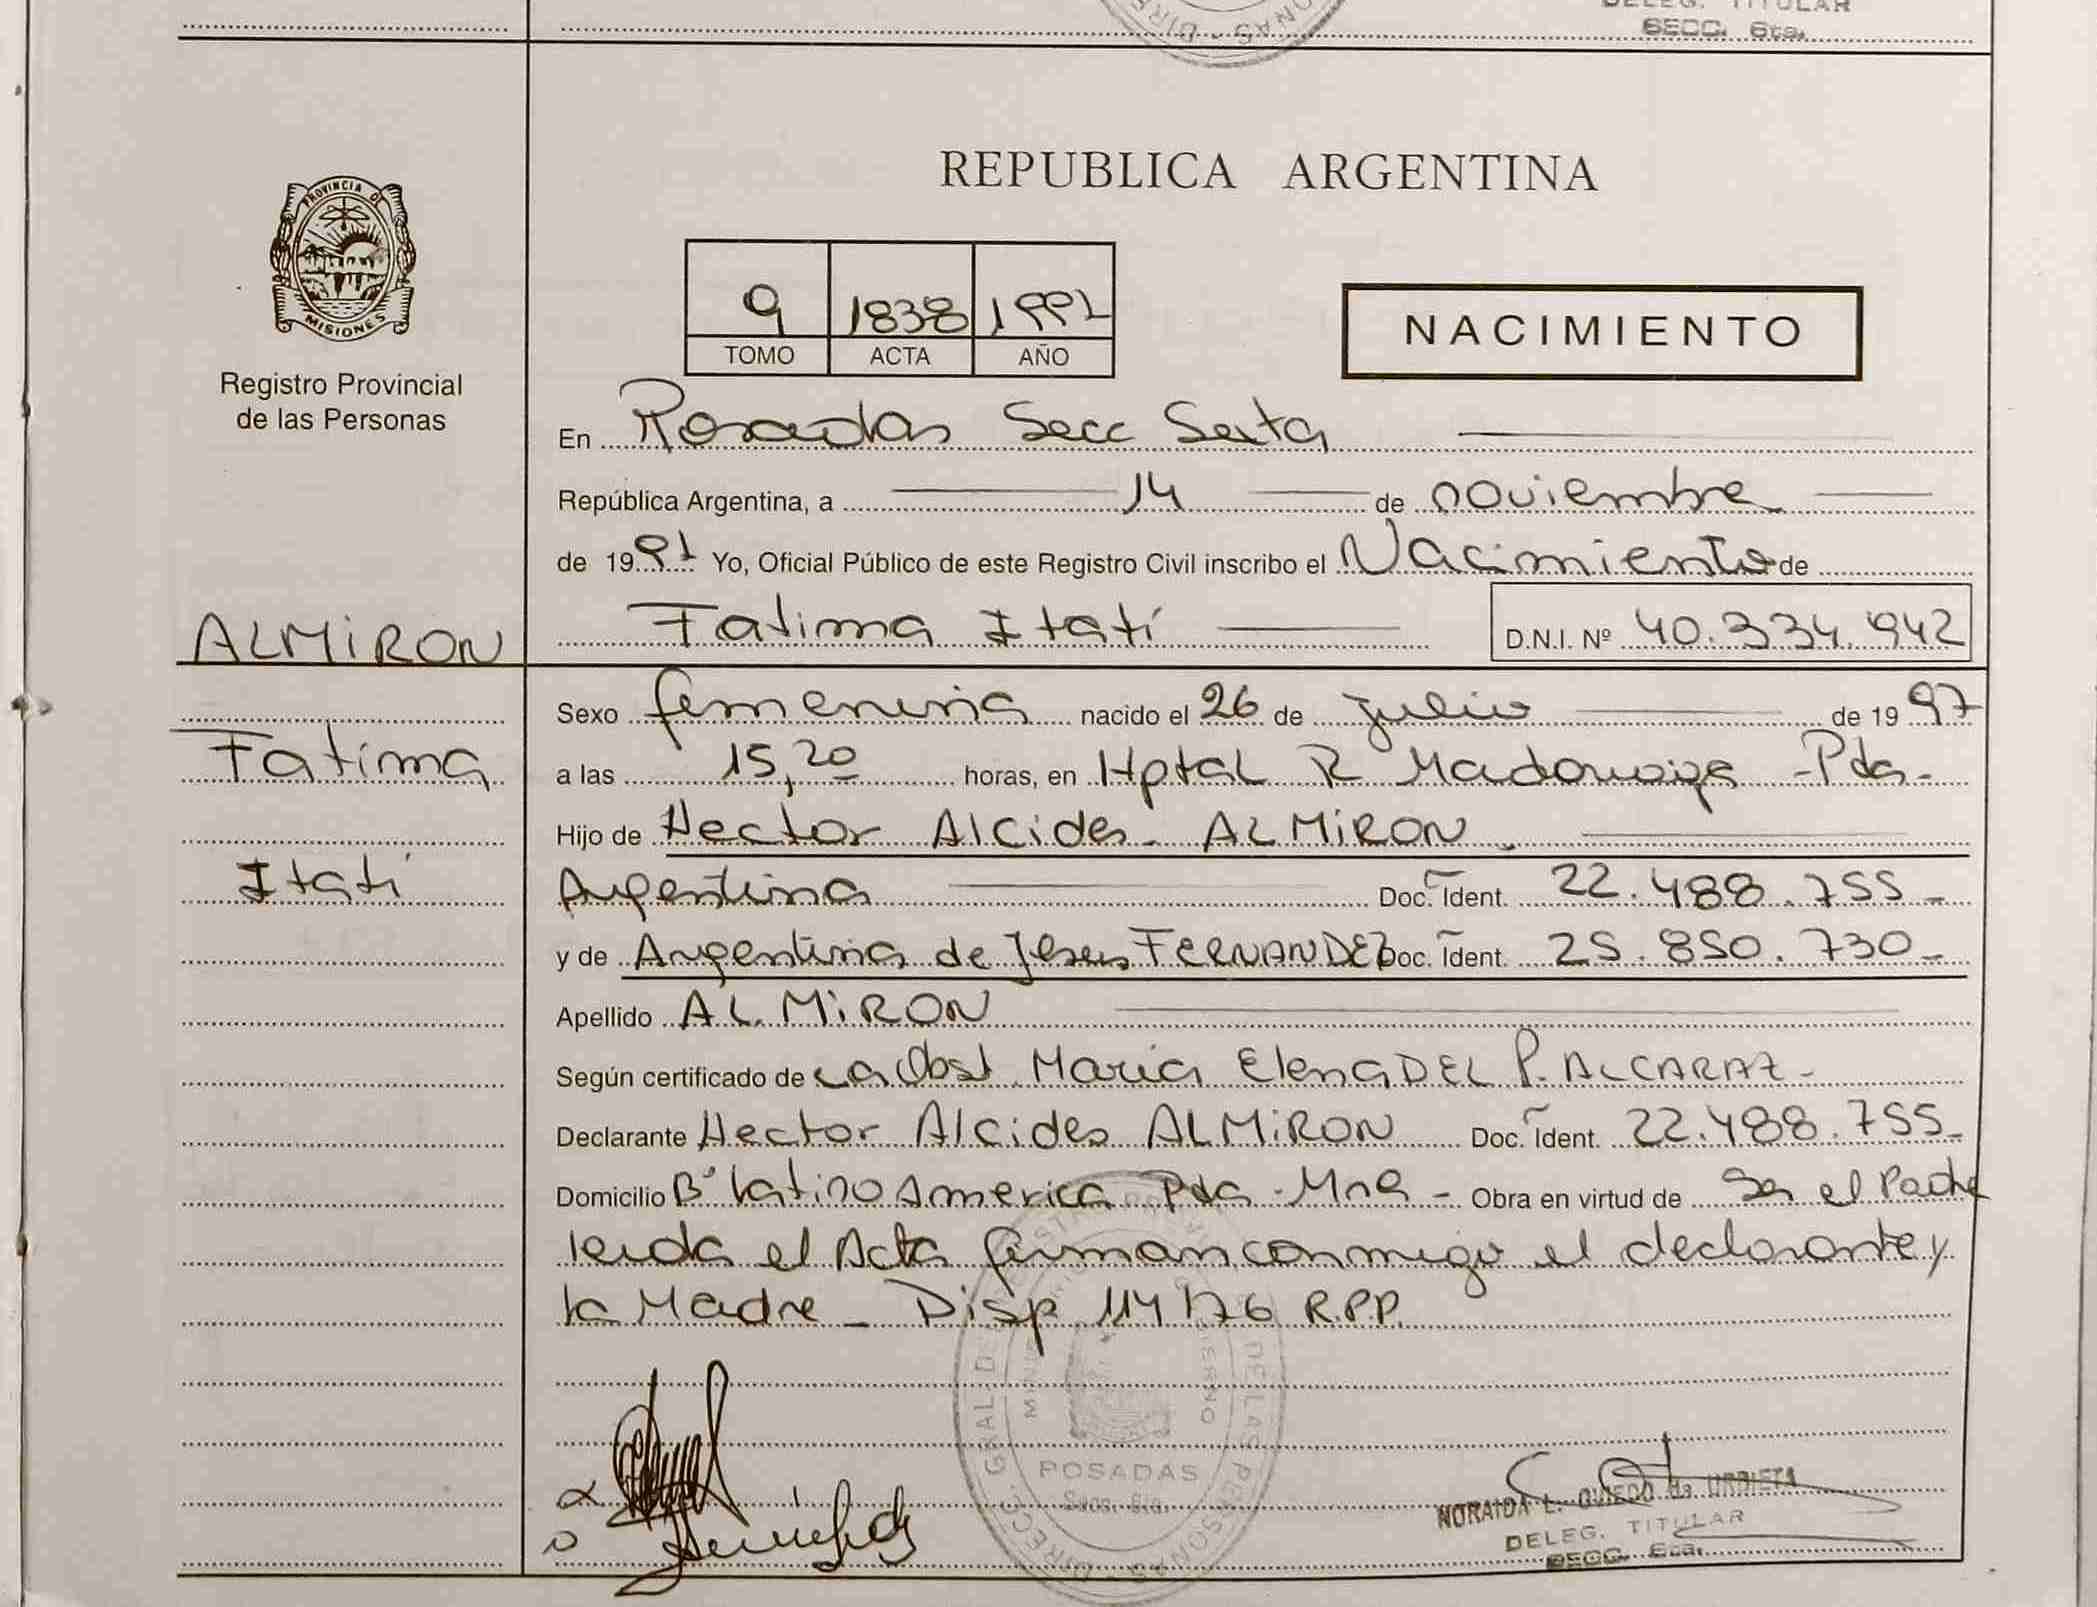 DELEG. TITULAR
SECC. 6ta.
PROVINCIA DE
MISIONES
Registro Provincial
de las Personas
REPUBLICA ARGENTINA
9 1838 1997
TOMO ACTA AÑO
NACIMIENTO
En Posadas Secc Sexta
República Argentina, a 14 de noviembre
de 1997 Yo, Oficial Público de este Registro Civil inscribo el Nacimiento de
ALMIRON
Fatima Itatí D.N.I. Nº 40.334.942
Sexo femenina nacido el 26 de julio de 1997
Fatima
a las 15,20 horas, en Hptal R Madariaga -Pdas-
Hijo de Hector Alcides ALMIRON
Itatí
Argentina Doc. Ident. 22.488.755-
y de Argentina de Jesus FERNANDEZ Doc. Ident. 25.850.730-
Apellido ALMIRON
Según certificado de La Obst Maria Elena DEL P. ALCARAZ-
Declarante Hector Alcides ALMIRON Doc. Ident. 22.488.755-
Domicilio Bº Latino America Pdas - Mnes - Obra en virtud de Ser el Padre
leida el Acta firman conmigo el declarante y
la Madre - Disp 114/76 R.P.P.
POSADAS
Secc. 6ta.
NORAIDA L. OVIEDO de URDIETA
DELEG. TITULAR
SECC. 6ta.